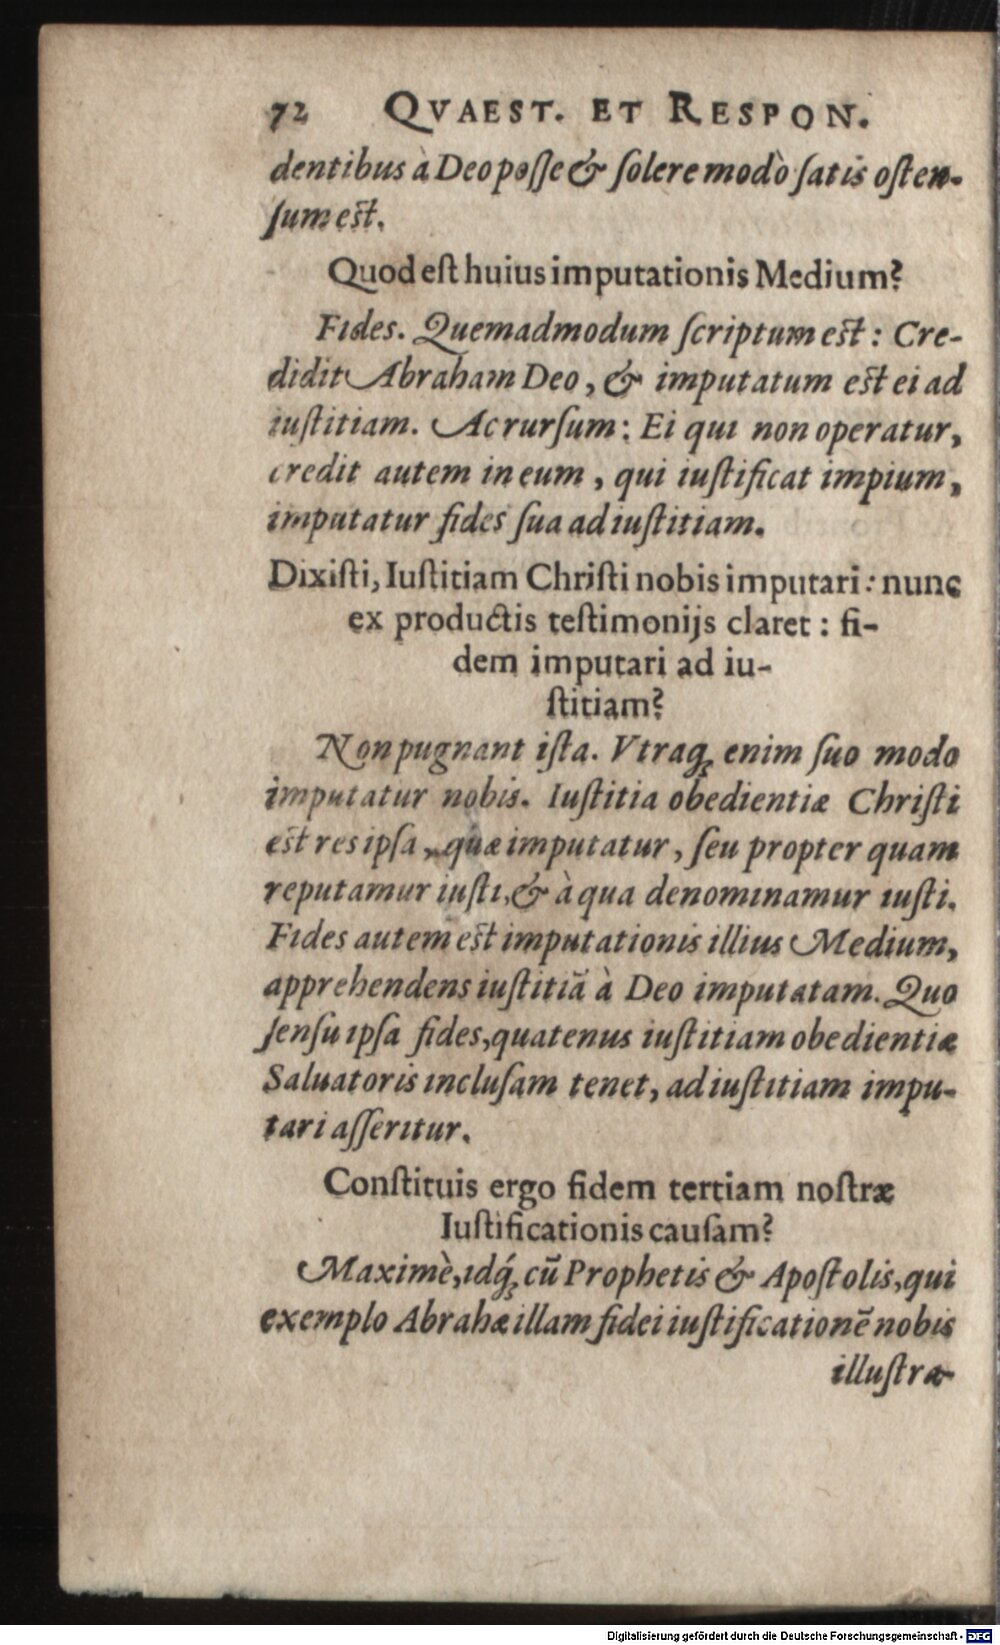 72 QVAEST. ET RESPON.
dentibus à Deo posse & solere modò satis osten-
sum est.
Quod est huius imputationis Medium?
Fides. Quemadmodum scriptum est: Cre-
didit Abraham Deo, & imputatum est ei ad
iustitiam. Ac rursum: Ei qui non operatur,
credit autem in eum, qui iustificat impium,
imputatur fides sua ad iustitiam.
Dixisti, Iustitiam Christi nobis imputari: nunc
ex productis testimonijs claret: fi-
dem imputari ad iu-
stitiam?
Non pugnant ista. Vtraq; enim suo modo
imputatur nobis. Iustitia obedientiæ Christi
est res ipsa, quæ imputatur, seu propter quam
reputamur iusti, & à qua denominamur iusti.
Fides autem est imputationis illius Medium,
apprehendens iustitiã à Deo imputatam. Quo
sensu ipsa fides, quatenus iustitiam obedientiæ
Saluatoris inclusam tenet, ad iustitiam impu-
tari asseritur.
Constituis ergo fidem tertiam nostræ
Iustificationis causam?
Maximè, idq́; cũ Prophetis & Apostolis, qui
exemplo Abrahæ illam fidei iustificationẽ nobis
illustra-
Digitalisierung gefördert durch die Deutsche Forschungsgemeinschaft - DFG